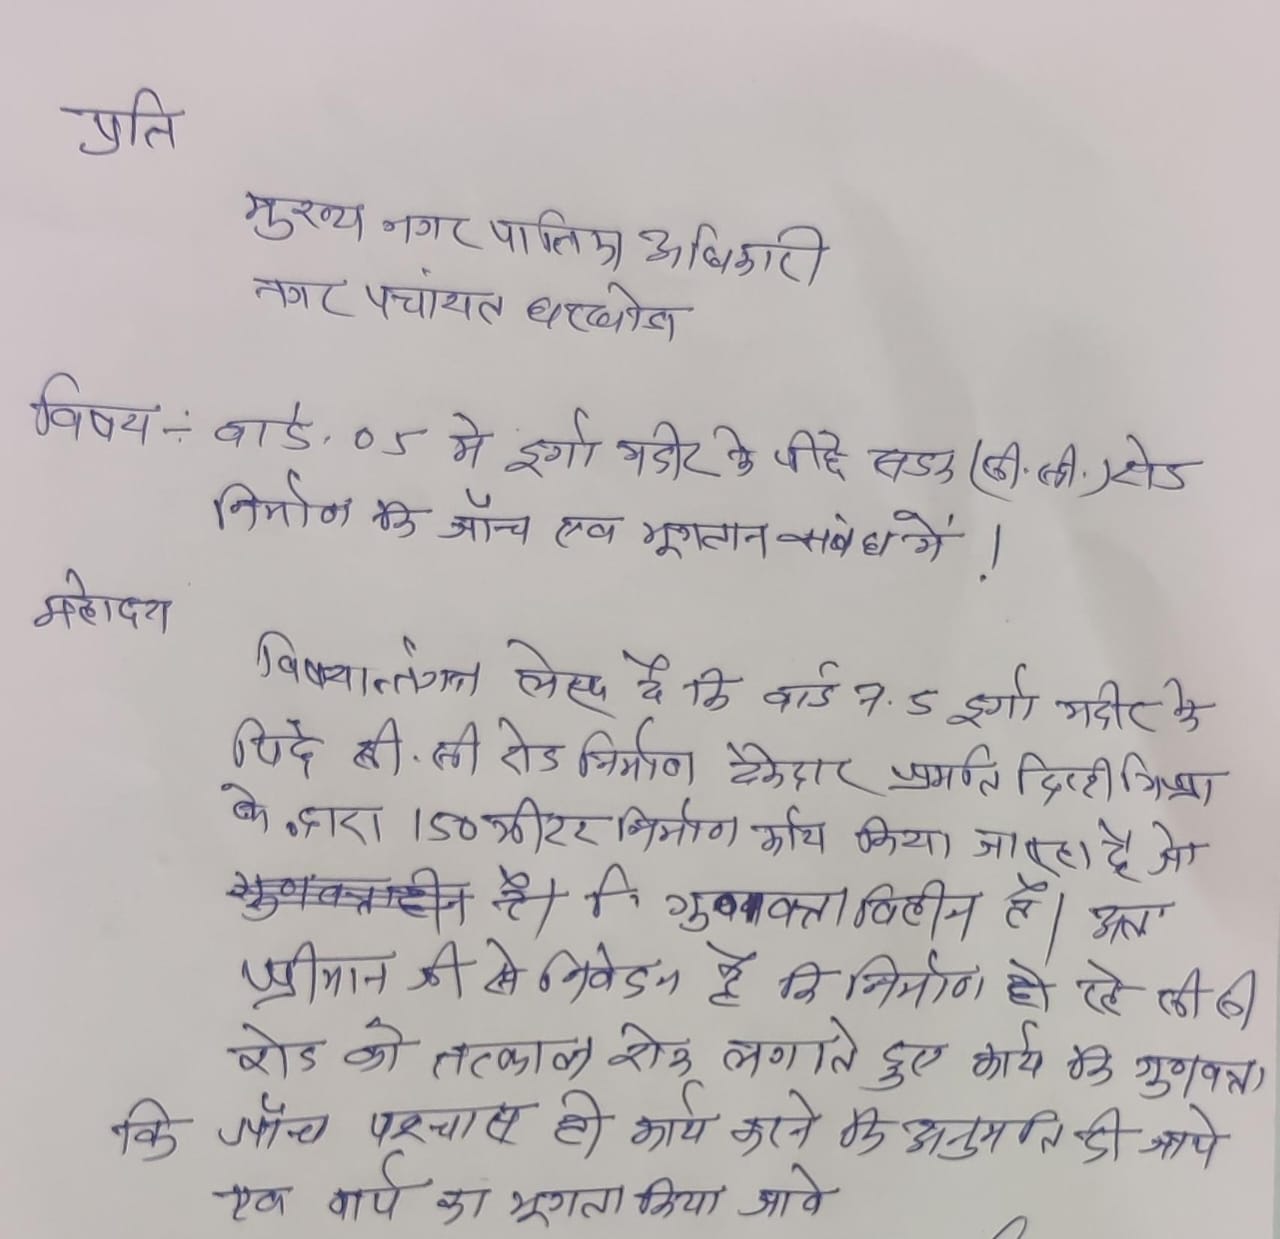 प्रति
मुख्य नगर पालिका अधिकारी
नगर पचांयत घरघोडा
विषय :- वार्ड. 05 में दुर्गा मदीर के पीछे सडक (सी.सी.) रोड
निर्माण कि जाँच एव भूगतान संबंध में !
महोदय
विषयान्तंगत लेख है कि वार्ड न. 5 दुर्गा मदीर के
पिछे सी.सी रोड निर्माण ठेकेदार
के द्वारा 150 मीटर निर्माण कार्य किया जा रहा है जो
कि गुणवक्ता विहीन है। अतः
श्रीमान जी से निवेदन है कि निर्माण हो रहे सी सी
रोड को तत्काल रोक लगाते हुए कार्य कि गुणवत्ता
कि जाँच पश्चात ही कार्य करने कि अनुमति दी जाये
एव कार्य का भूगता किया जावे